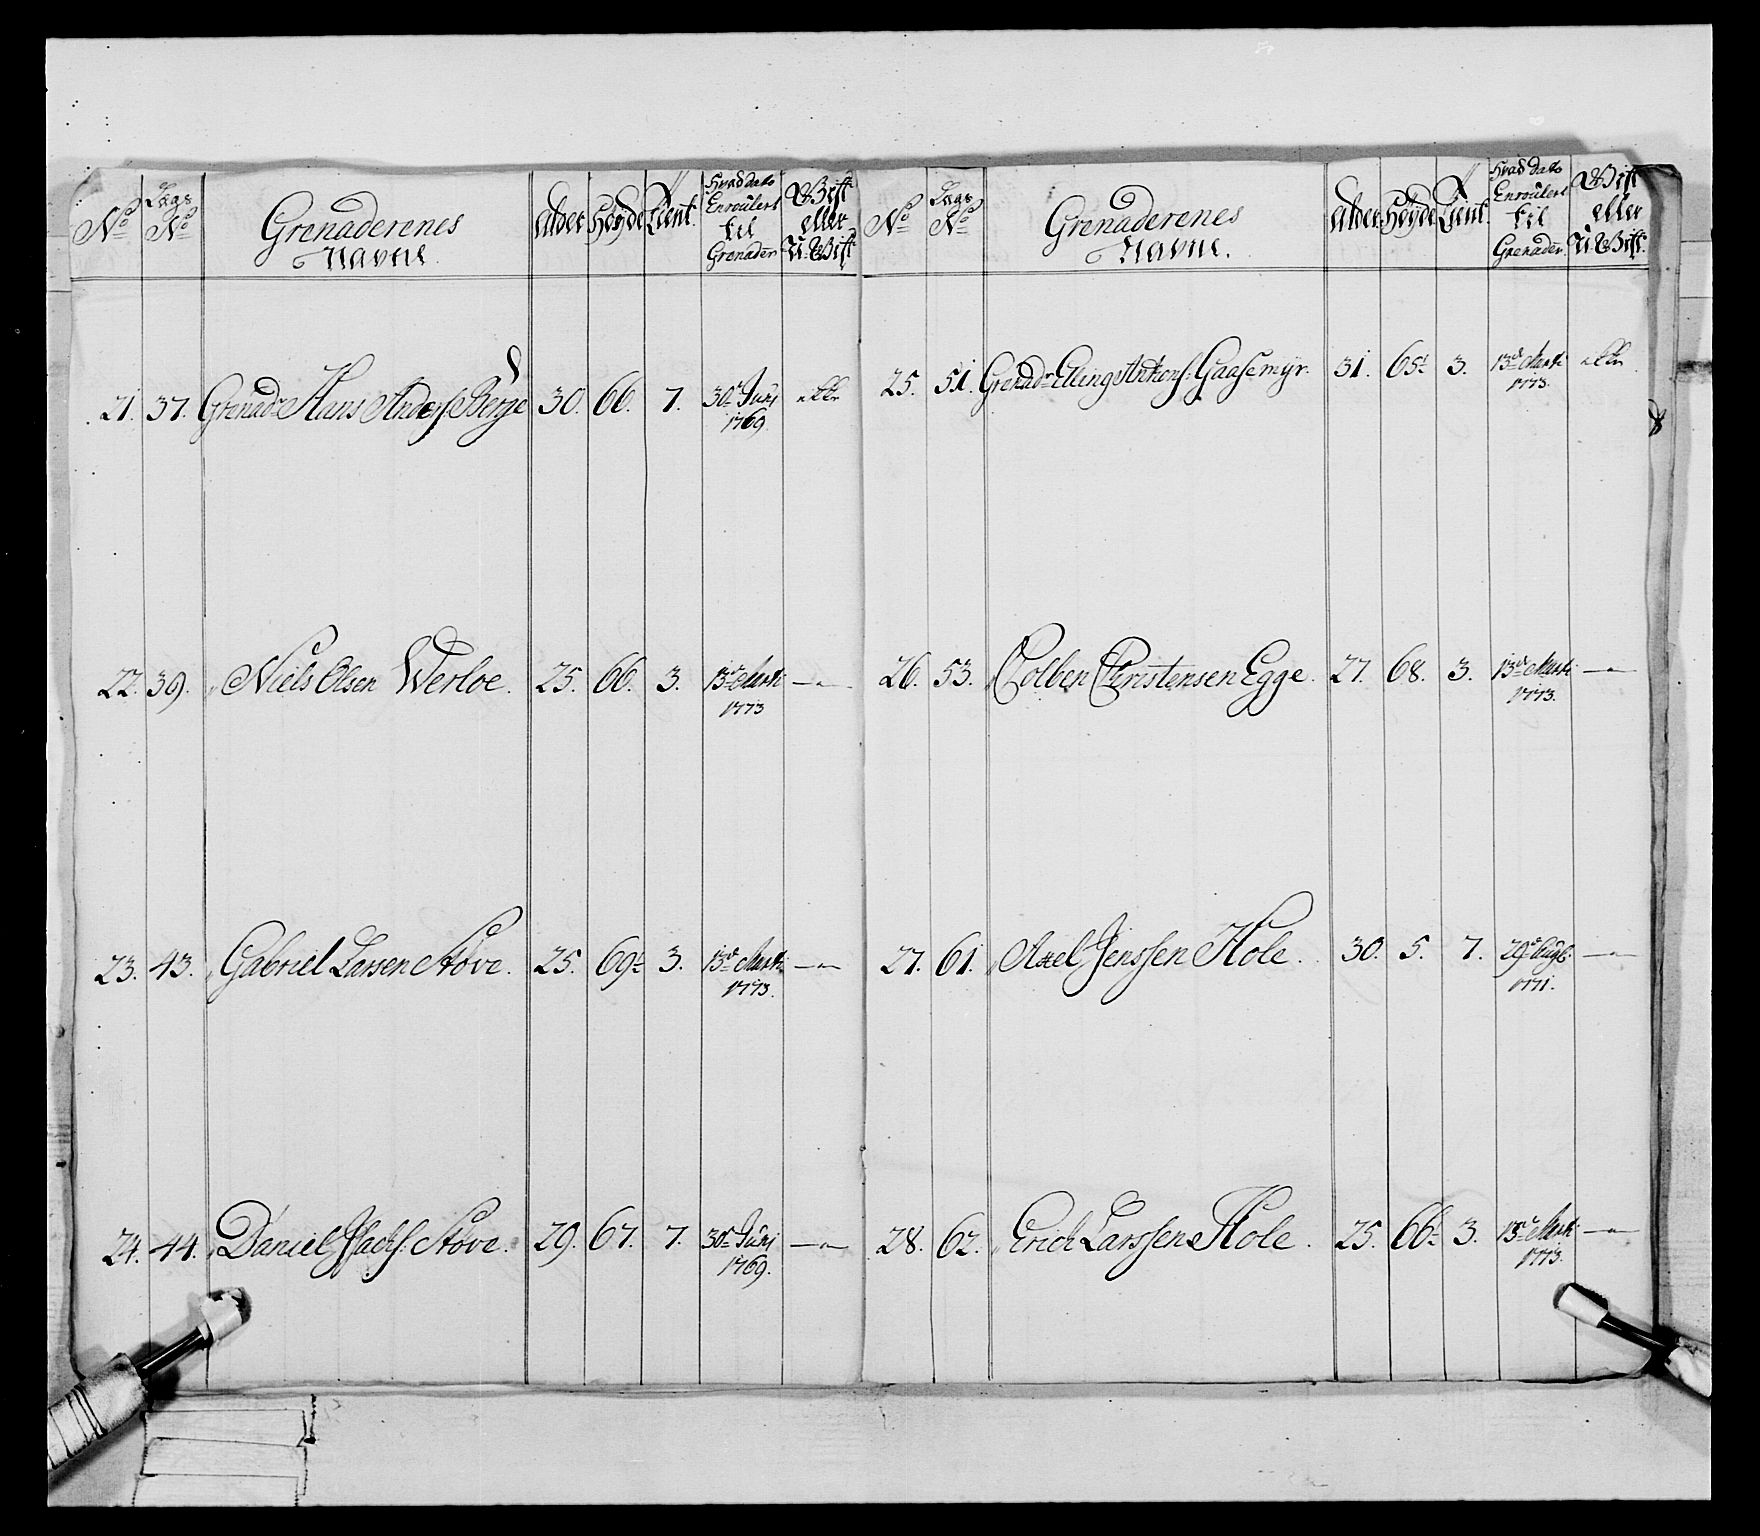 No Lægs No Grenaderenes Navne Alder Høyde Tient Hvad dato Enroulert til Grenader Gift eller U:Gift
21. 37. Grenadr Hans Anders: Berge 30. 66. 7. 30te Juni 1769. ekke
22. 39. " Niels Olsen Werloe. 25. 66. 3. 13de Marti 1773 —"—
23. 43. " Gabriel Larsen Støve. 25. 69½ 3. 13de Marti 1773. —"—
24. 44. " Daniel Jsachs: Støve. 29. 67. 7. 30te Juni 1769. —"—
No Lægs No Grenaderenes Navne. Alder Høyde Tient Hvad dato Enroulert til Grenader Gift eller U:Gift
25. 51. Grenadr Elling Antons: Gaasemyr. 31. 65½ 3. 13de Marti 1773. ekke
26. 53. " Colben Christensen Egge. 27. 68. 3. 13de Marti 1773. —"—
27. 61. " Axel Jenssen Hole. 30. 5. 7. 29de Augt: 1771. —"—
28. 62. " Erich Larssen Hole. 25. 66½ 3. 13de Marti 1773. —"—